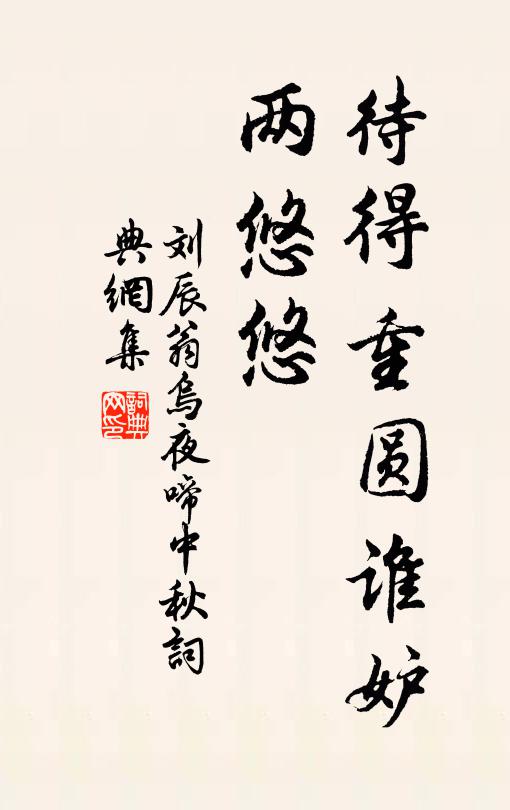 待得重圆谁妒
两悠悠
刘辰翁乌夜啼中秋詞
典網集
詞典网印